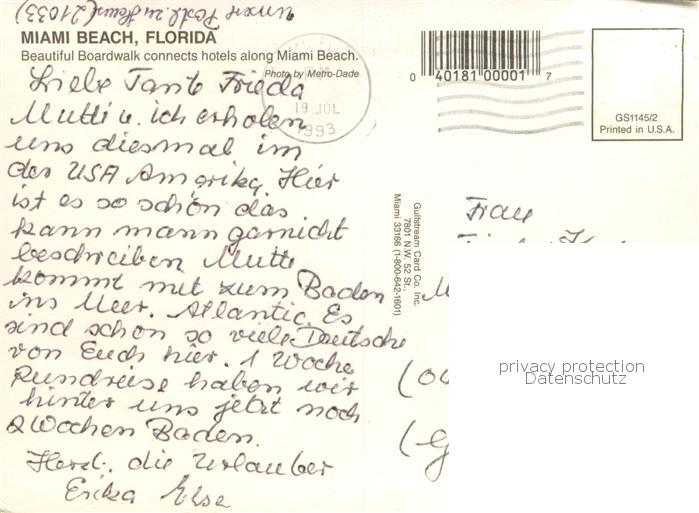 unsere Postl. zu Hause (21033)
MIAMI BEACH, FLORIDA
Beautiful Boardwalk connects hotels along Miami Beach.
Photo by Metro-Dade
19 JUL
1993
Liebe Tante Frieda
Mutti u. ich erholen
uns diesmal im
der USA Amerika. Hier
ist es so schön das
kann mann garnicht
beschreiben. Mutti
kommt mit zum Baden
ins Meer. Atlantic. Es
sind schon so viele Deutsche
von Euch hier. 1 Woche
Rundreise haben wir
hinter uns jetzt noch
2 Wochen Baden.
Herzl. die Urlauber
Erika Else
0 40181 00001 7
GS1145/2
Printed in U.S.A.
Gulfstream Card Co. Inc.
7801 N.W. 52 St.,
Miami 33166 (1-800-642-1601)
Frau
privacy protection
Datenschutz